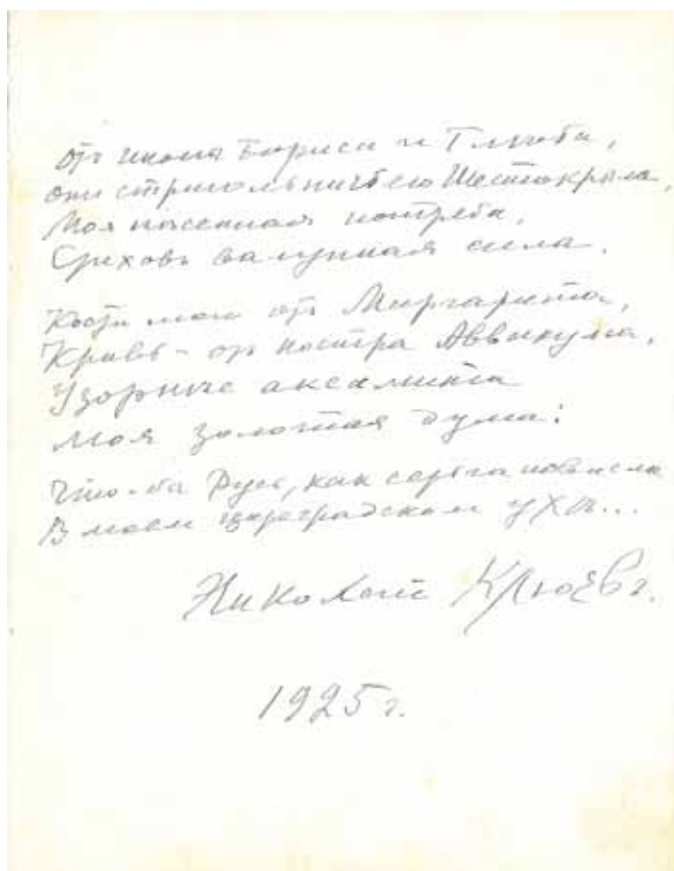 Отъ иконы Бориса и Глеба,
Отъ стригольничьего Шестокрыла,
Моя песенная потреба,
Стиховъ валунная сила.
Кости мои от Маргарита,
Кровь - от костра Аввакума,
Узорнее аксамита
Моя золотая дума:
Что-бы Русь, как серьга повисла
В моем цареградском ухе...
Николай Клюевъ.
1925 г.